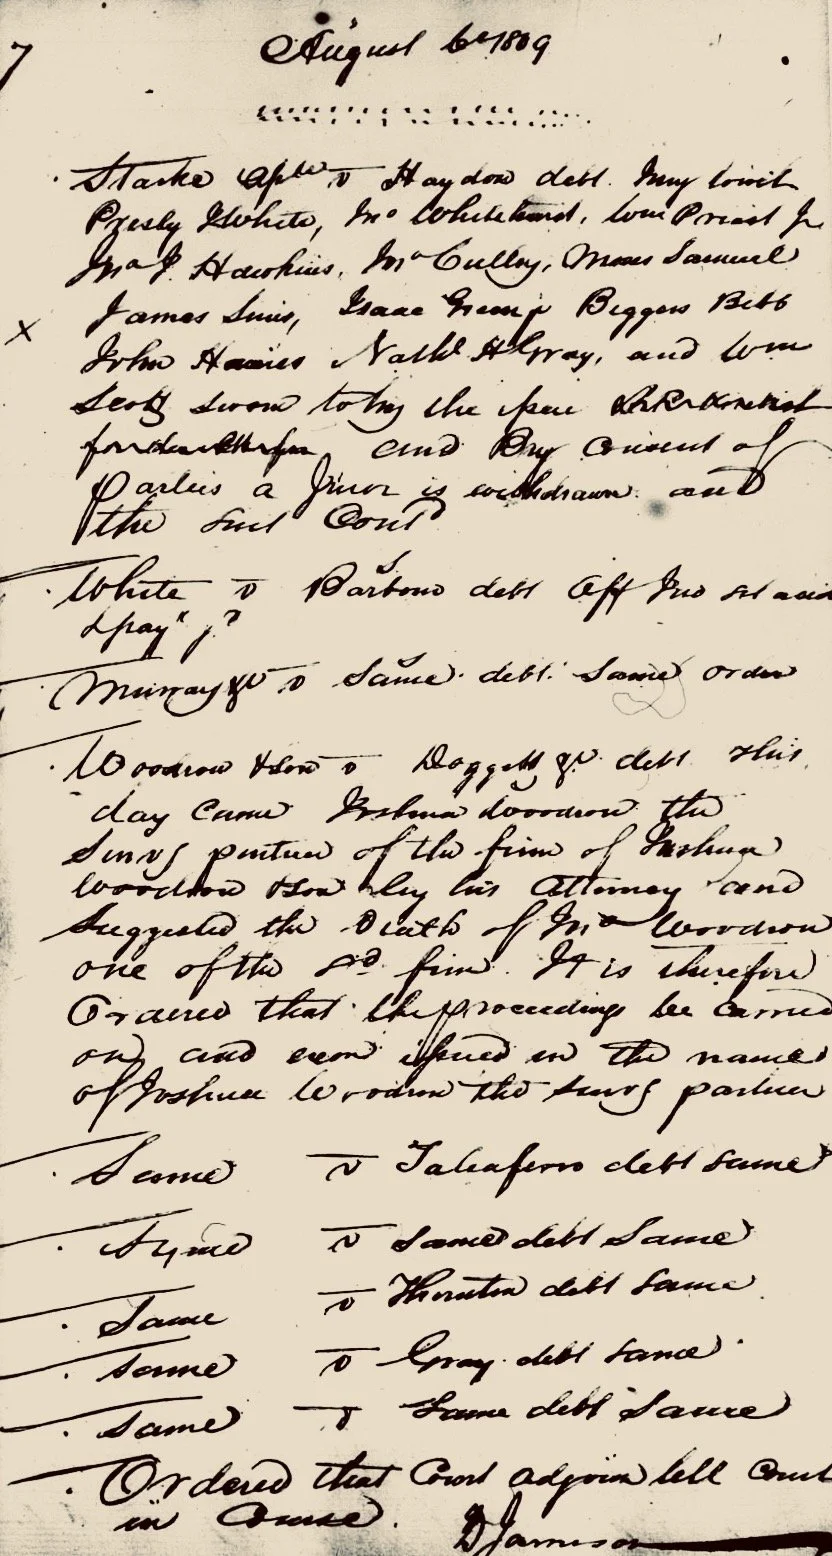 7
August 6th 1809
Starke v Haydon debt. Jury towit
Presly White, Jno Whitehead, Wm Priest Jr
Jno J. Hawkins, Jno Cullry, Moses Samuel
x James Sims, Isaac Biggers Bibb
John Nathl H Gray, and Wm
Scott sworn to try the
and By consent of
parties a Juror is withdrawn and
the suit Contd
White v Barbour debt Aff Jno set aside
& pay
Murray &c v Same debt. Same order
Woodrow & Son v Doggett &c debt This
day came Joshua Woodrow the
Survg partner of the firm of Joshua
Woodrow & Son by his Attorney and
Suggested the Death of Jno Woodrow
one of the sd firm. It is therefore
Ordered that the proceedings be carried
on, and issued in the name
of Joshua Woodrow the Survg partner
Same v Taliaferro debt same
Same v Same debt Same
Same v Thornton debt Same
Same v Gray debt same
Same v Same debt Same
Ordered that Court adjorn till Court
in Course.
D Jamison